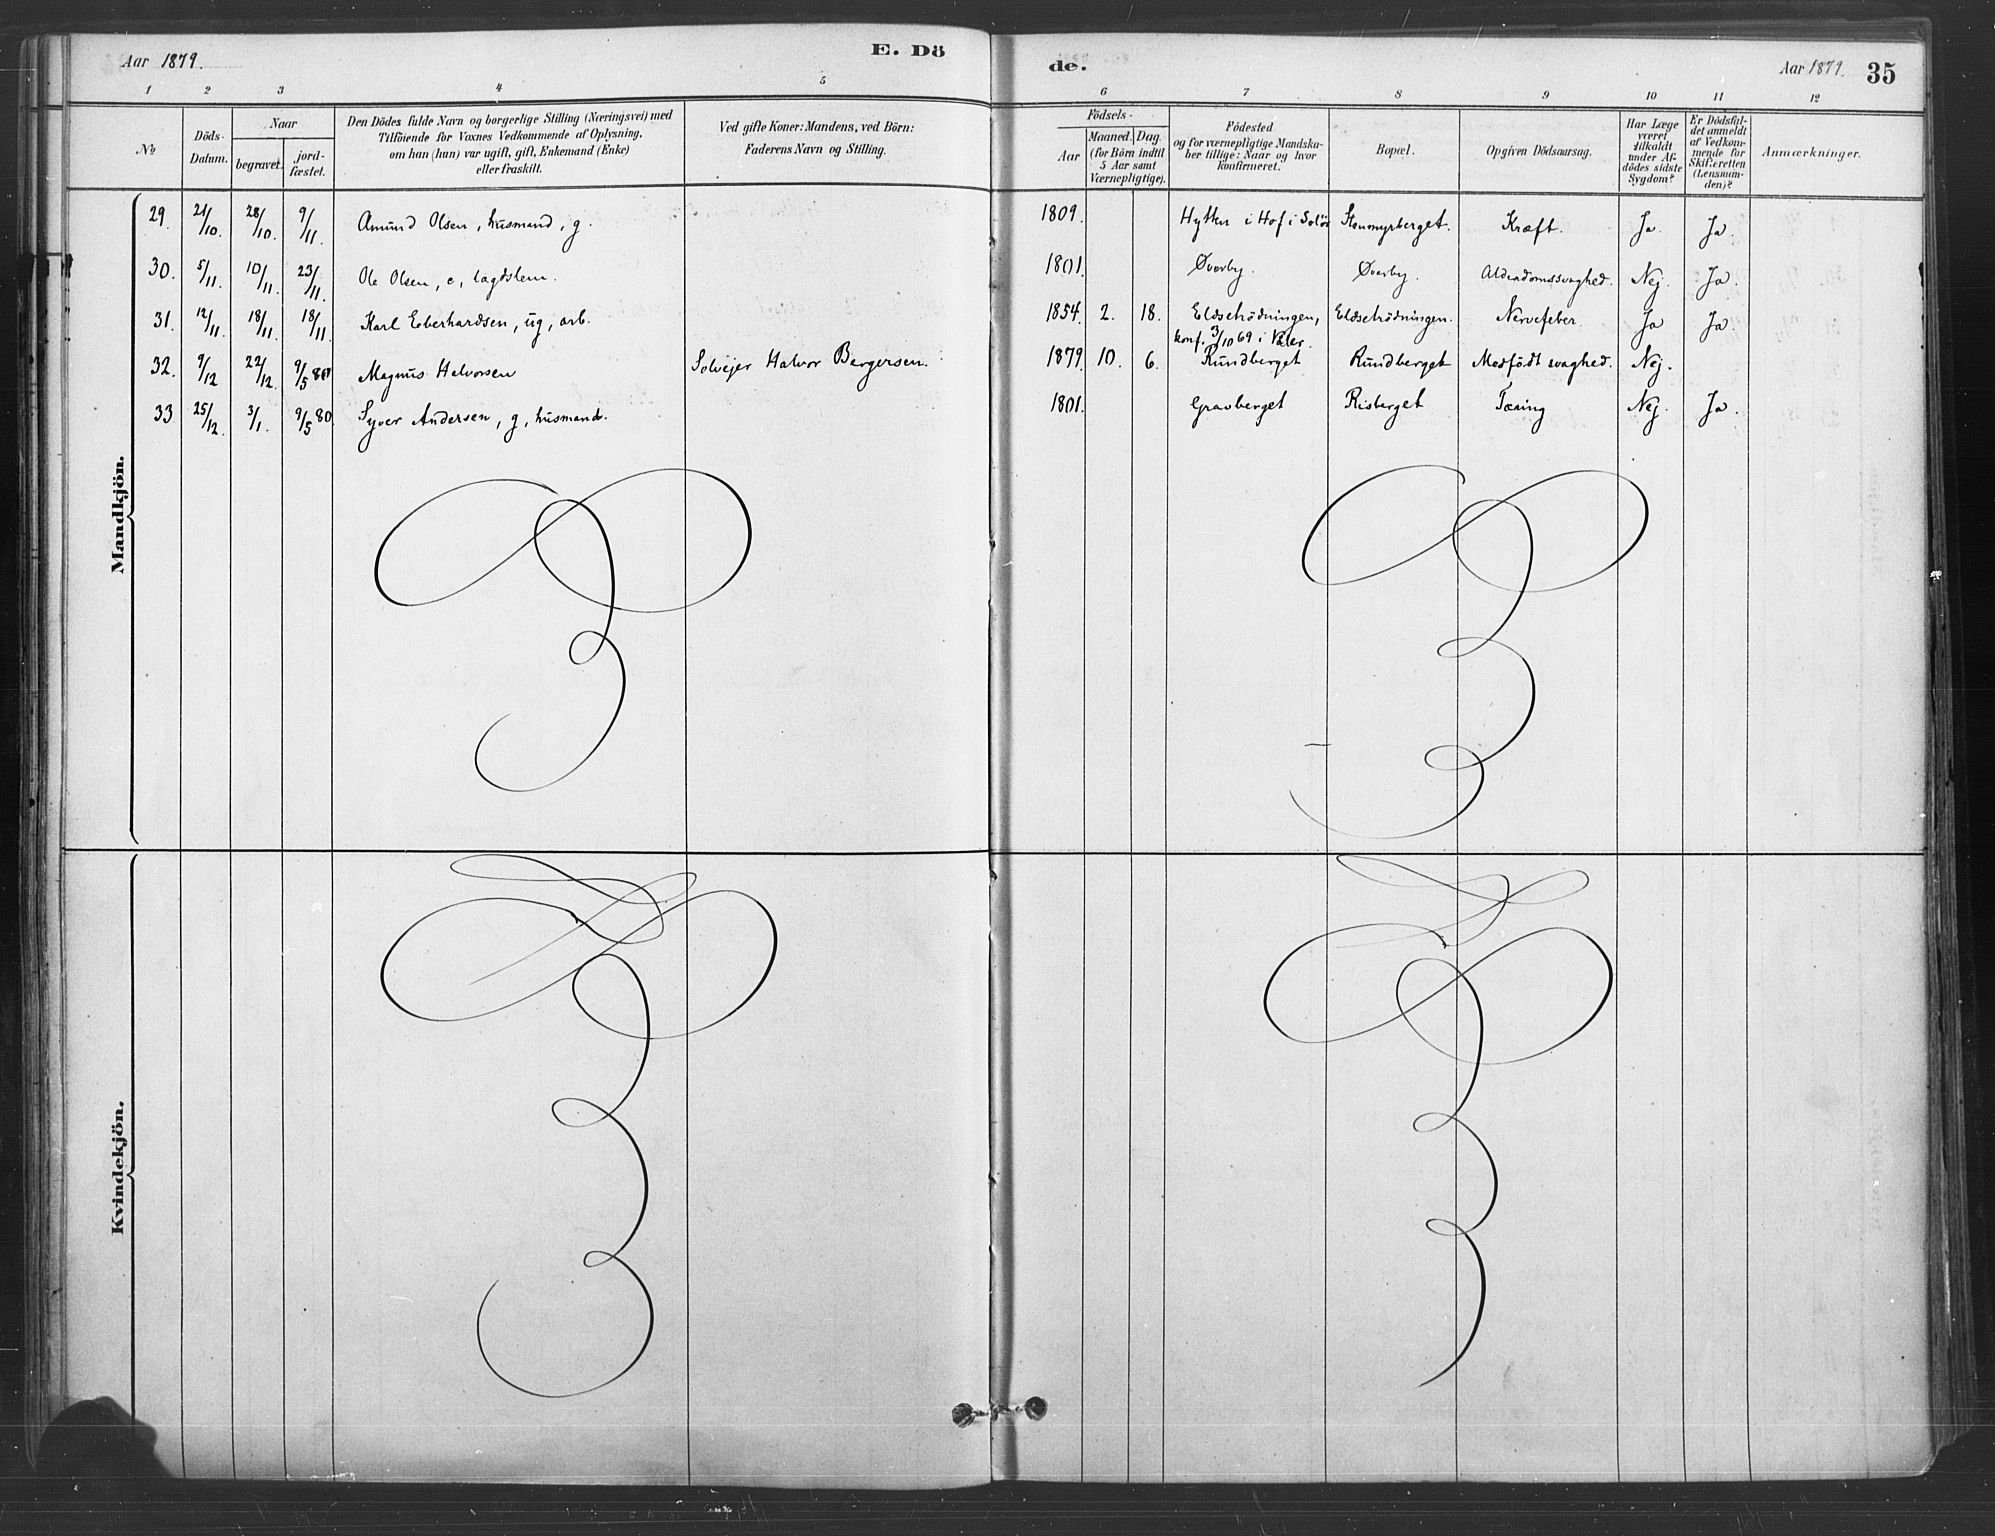 Aar 1879.
E. Dö
de.
Aar 1879.
35
1 2 3 4 5 6 7 8 9 10 11 12
No
Döds-
Datum.
Naar
begravet.
jord-
fæstet.
Den Dödes fulde Navn og borgerlige Stilling (Næringsvei) med
Tilföiende for Voxnes Vedkommende af Oplysning,
om han (hun) var ugift, gift, Enkemand (Enke)
eller fraskilt.
Ved gifte Koner: Mandens, ved Börn:
Faderens Navn og Stilling.
Födsels-
Aar
Maaned. Dag.
(for Börn indtil
5 Aar samt
Værnepligtige).
Födested
og for værnepligtige Mandska-
ber tillige: Naar og hvor
konfirmeret.
Bopæl.
Opgiven Dödsaarsag.
Har Læge
været
tilkaldt
under Af-
dödes sidste
Sygdom?
Er Dödsfal-
det anmeldt
af Vedkom-
mende for
Skifteretten
(Lensman-
den)?
Anmærkninger.
Mandkjön.
29. 21/10. 28/10. 9/11. Amund Olsen, husmand, g. 1809. Hytten i Hof i Solör Stenmyrberget. Kræft. Ja. Ja.
30. 5/11. 10/11. 23/11. Ole Olsen, e, lagdslem. 1801. Øverby. Øverby. Alderdomssvaghed. Nej. Ja.
31. 12/11. 18/11. 18/11 Karl Eberhardsen, ug, arb. 1854. 2. 18. Eldsetrödningen, Eldsetrödningen. Nervefeber. Ja Ja.
konf. 3/10 69 i Valer.
32. 9/12 22/12. 9/5 80 Magnus Halvorsen Selvejer Halvor Bergersen. 1879. 10. 6. Rundberget Rundberget Medfödt svaghed. Nej.
33 25/12. 3/1. 9/5 80. Syver Andersen, g, husmand. 1801. Gravberget Risberget Tæring Nej. Ja.
Kvindekjön.